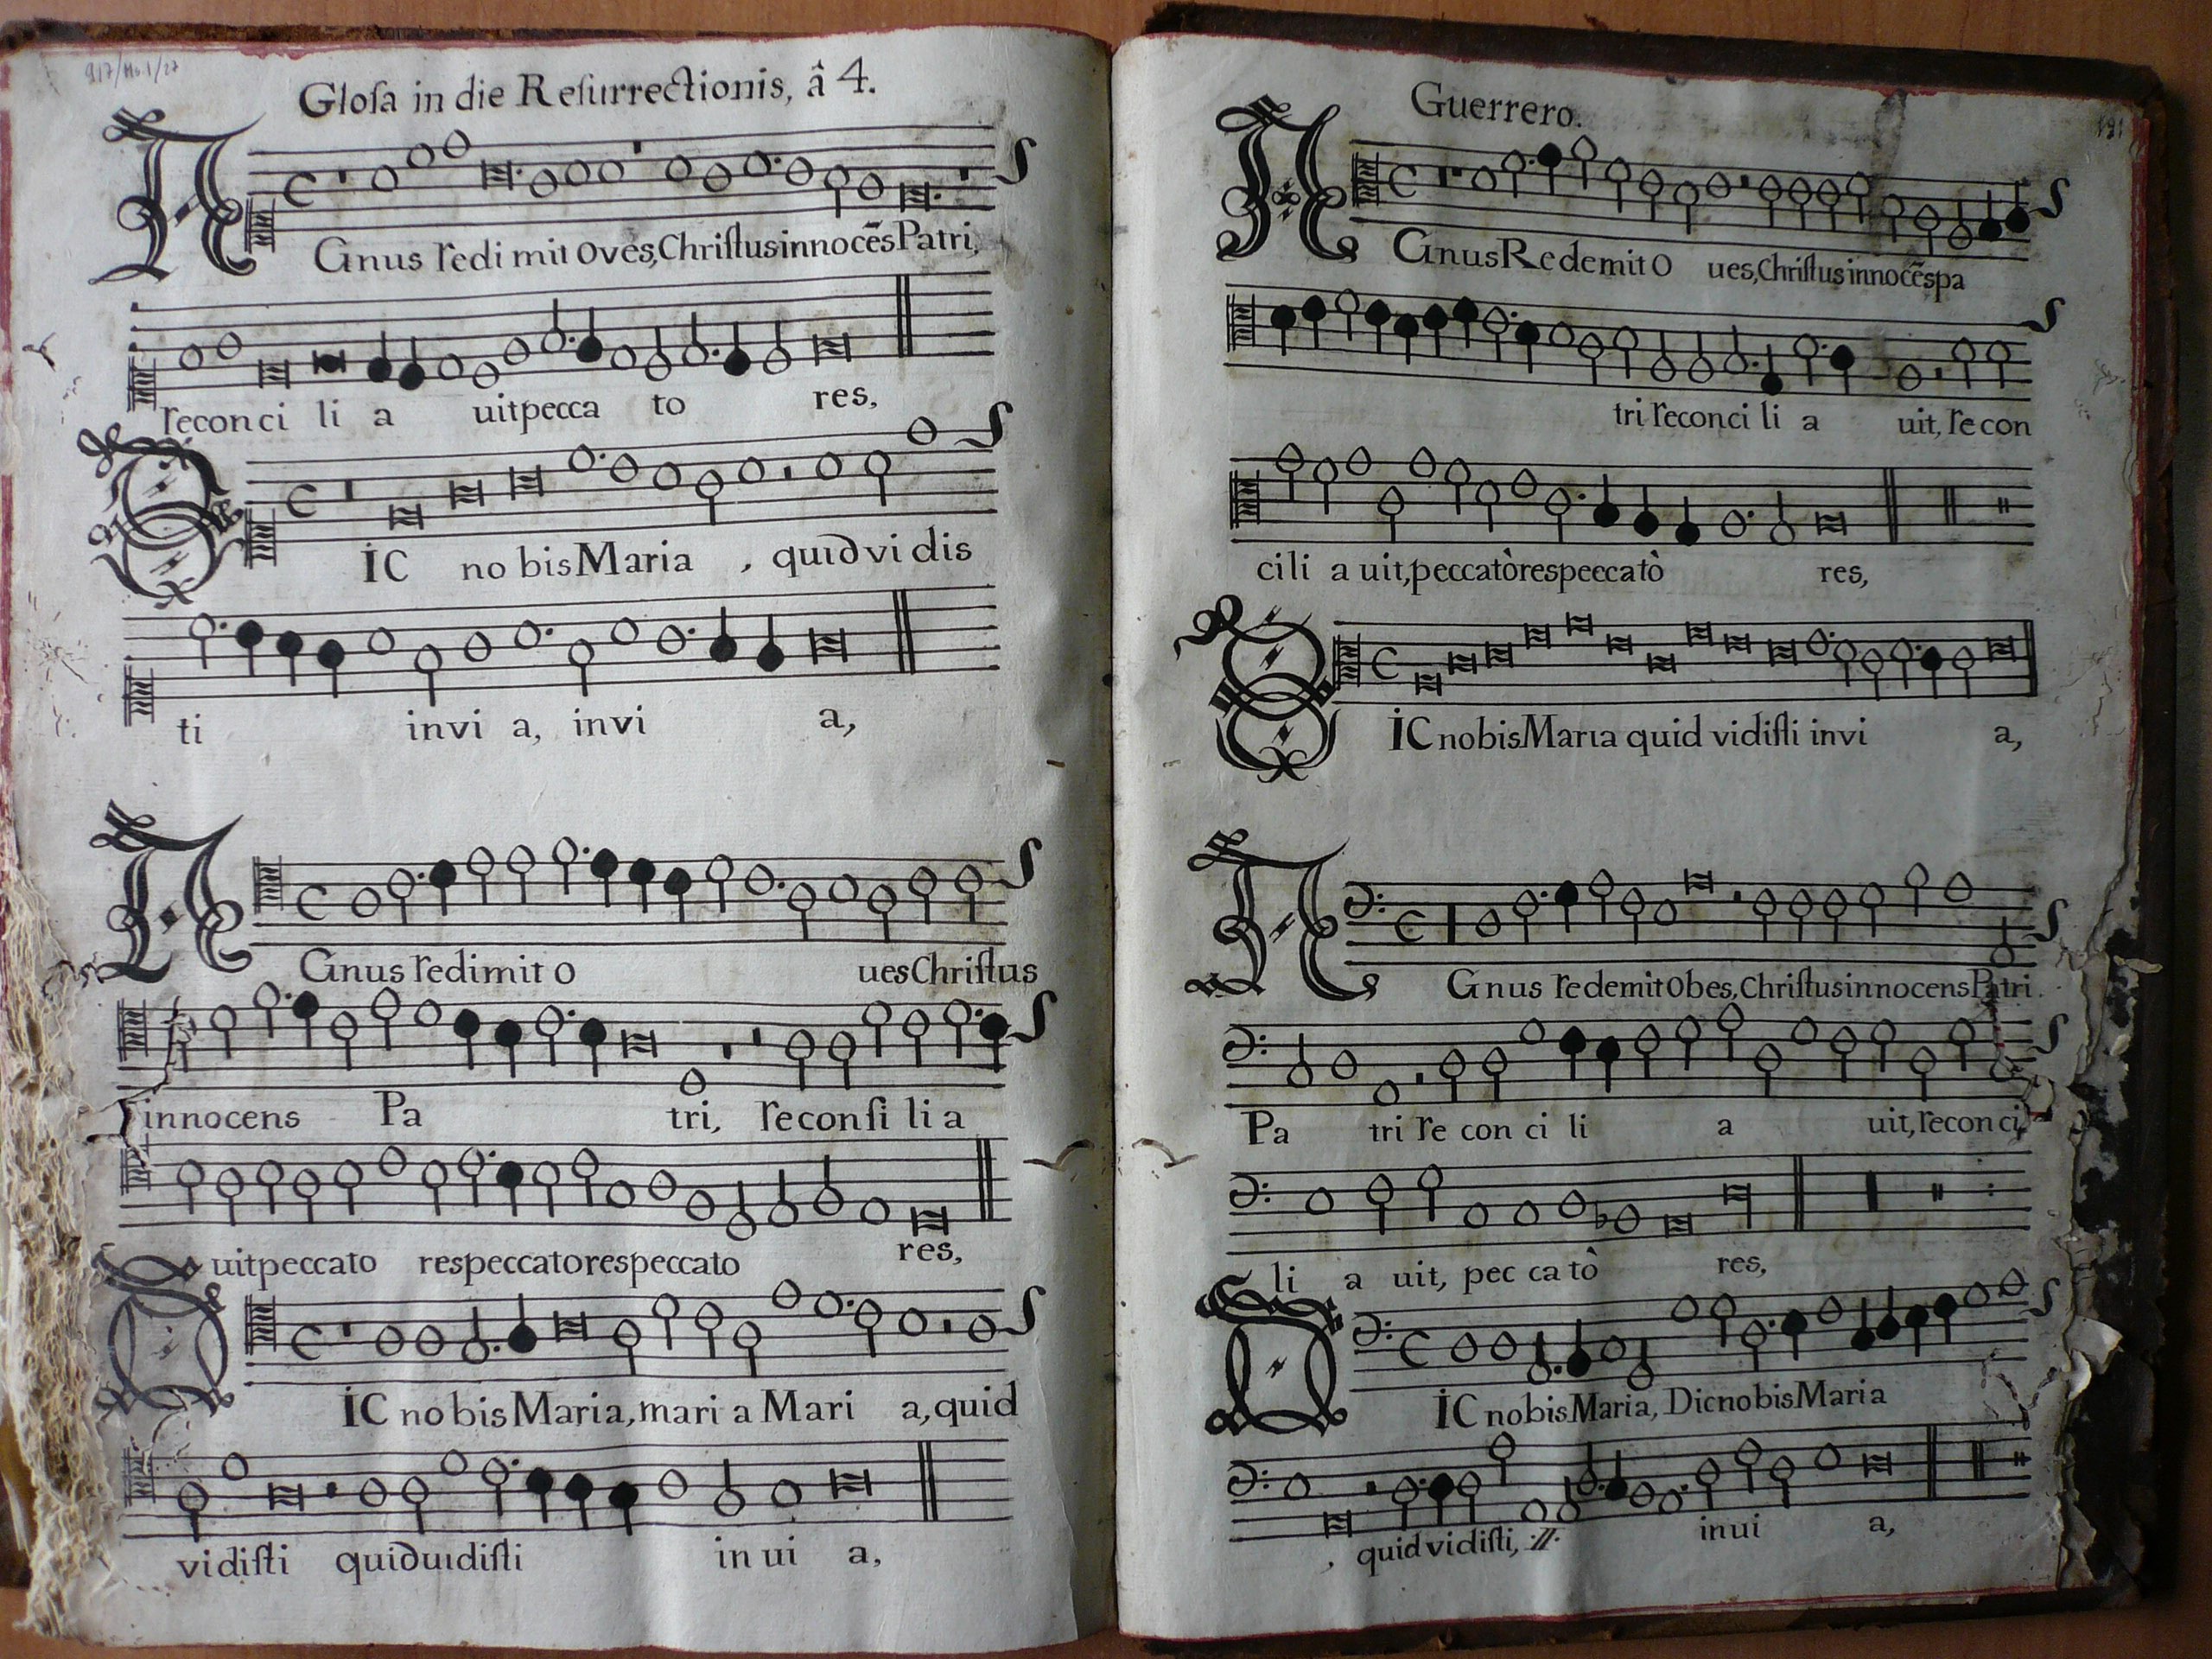 917/Mo.1/27
Glosa in die Resurrectionis, â 4.
AGnus redi mit oves, Christus innocẽs Patri,
reconci li a uit pecca to res,
DIC no bis Maria , quid vi dis
ti invi a, invi a,
AGnus redimit o ues Christus
innocens Pa tri, reconsi li a
uit peccato res peccato res peccato res,
DIC no bis Maria, mari a Mari a, quid
vidisti quid uidisti in ui a,
Guerrero.
191
AGnus Redemit O ues, Christus innocẽs pa
tri reconci li a uit, re con
ci li a uit, peccatò res peccatò res,
DIC nobis Maria quid vidisti invi a,
AGnus redemit obes, Christus innocens Patri.
Pa tri re con ci li a uit, recon ci,
li a uit, pec ca tò res,
DIC nobis Maria, Dic nobis Maria
, quid vidisti, :||: inui a,